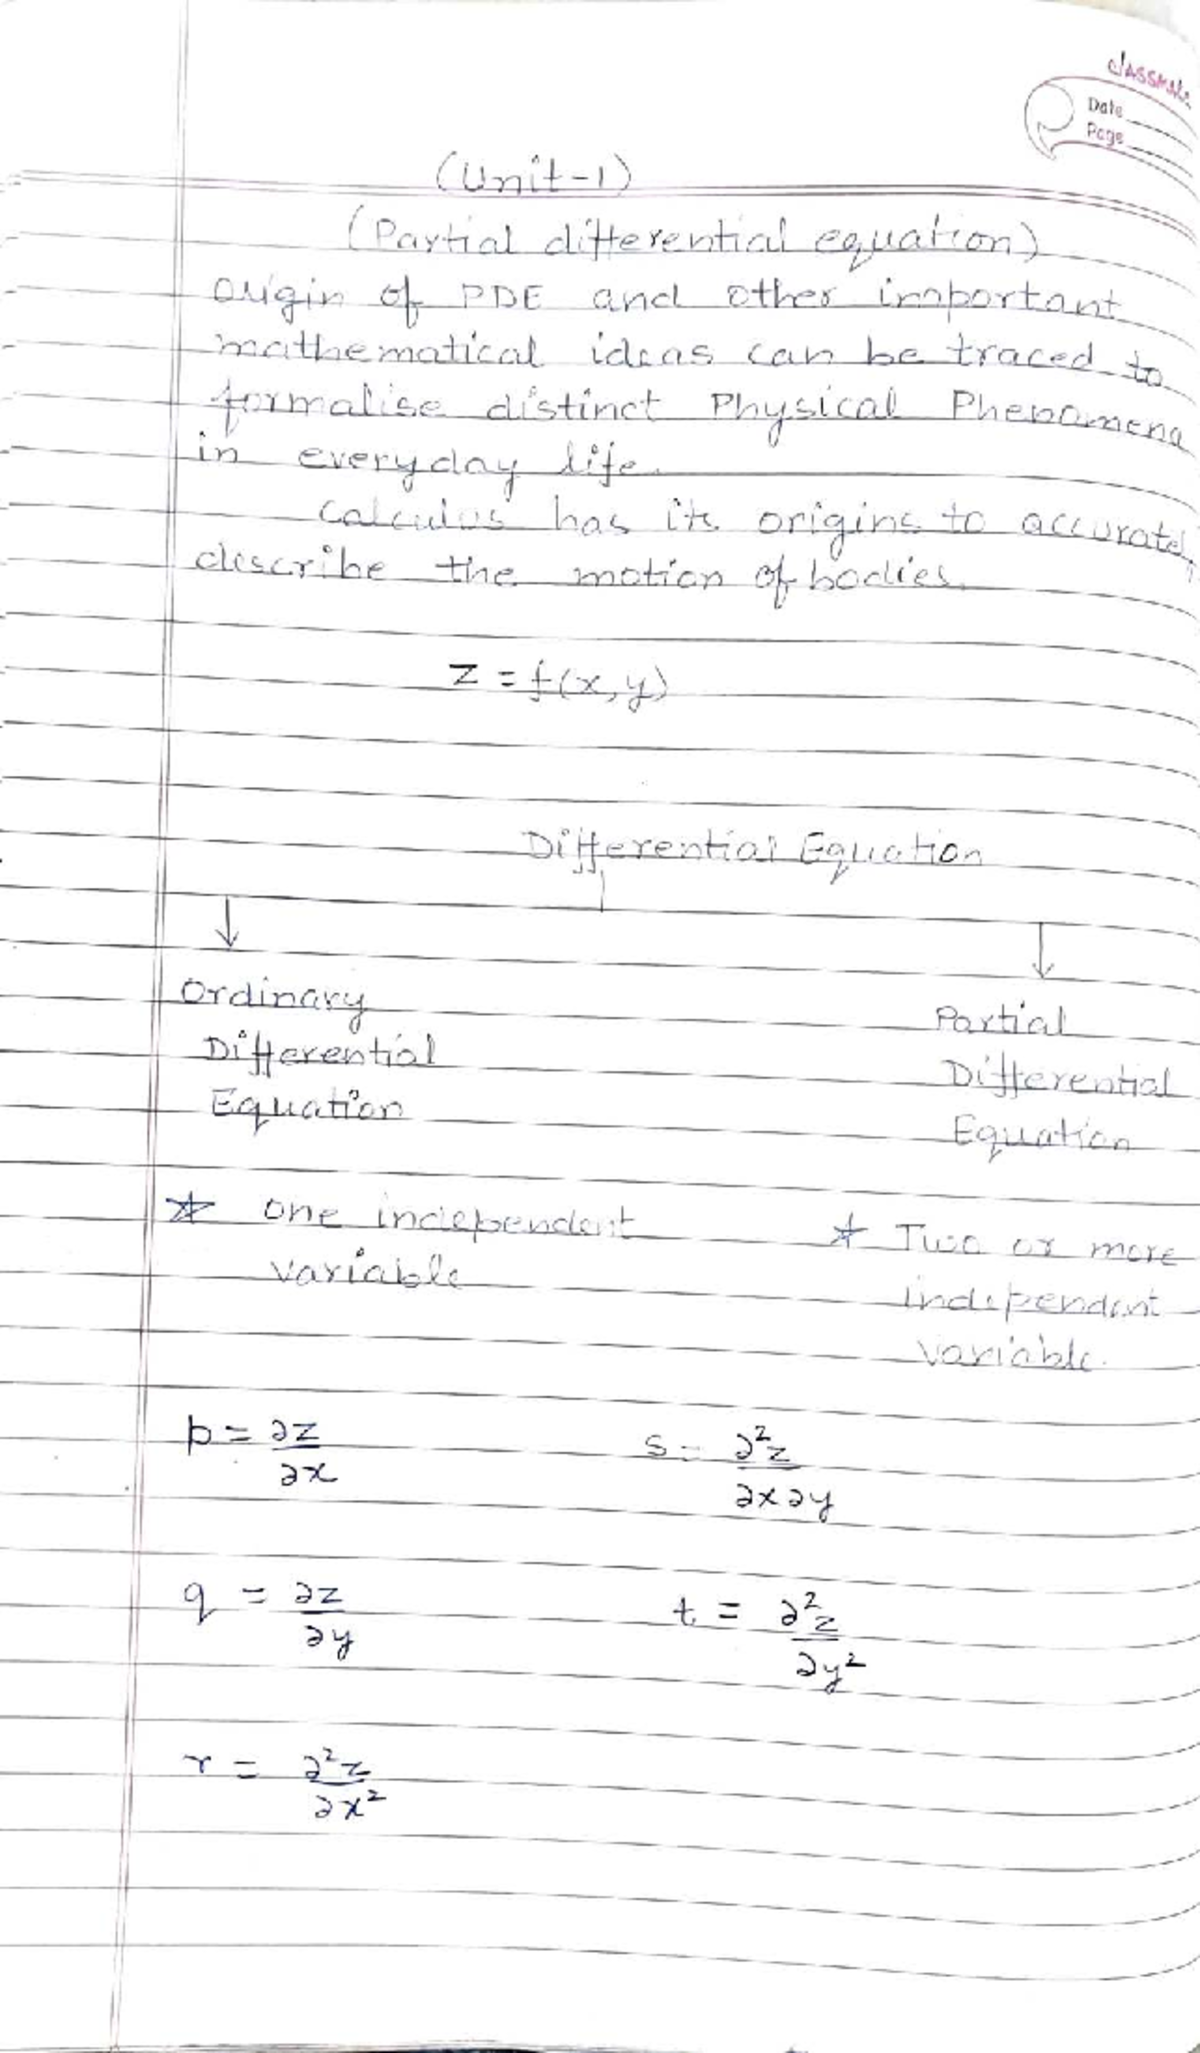 classmate
Date
Page
(Unit-1)
(Partial differential equation)
origin of PDE and other important
mathematical ideas can be traced to
formalise distinct Physical Phenomena
in everyday life.
Calculus has its origins to accurately
describe the motion of bodies.
z = f(x, y)
Differential Equation
Ordinary
Differential
Equation
Partial
Differential
Equation
* one independent
variable
* Two or more
independent
variable.
p = ∂z/∂x
s = ∂²z/∂x∂y
q = ∂z/∂y
t = ∂²z/∂y²
r = ∂²z/∂x²